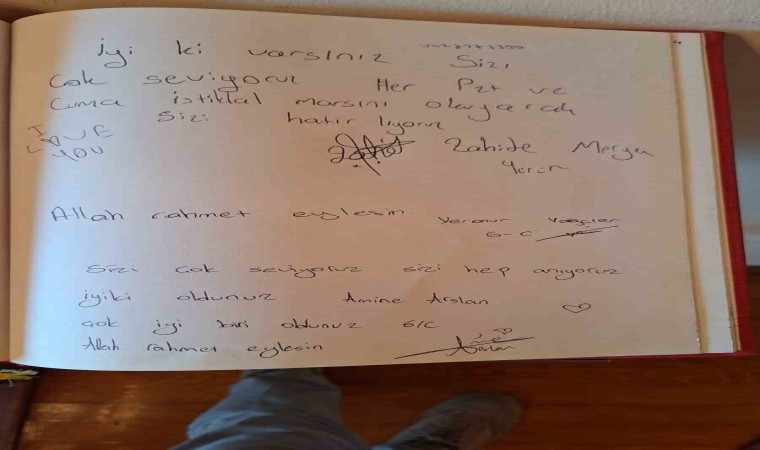 İyi ki varsınız Sizi
Çok seviyoruz Her Pzt ve
Cuma istiklal marsını okuyarak
Sizi hatırlıyoruz
I LOVE YOU
Zahide Meryem
Allah rahmet eylesin
6-C
Sizi çok seviyoruz sizi hep anıyoruz
iyiki oldunuz Amine Arslan
çok iyi biri oldunuz 6/C
Allah rahmet eylesin